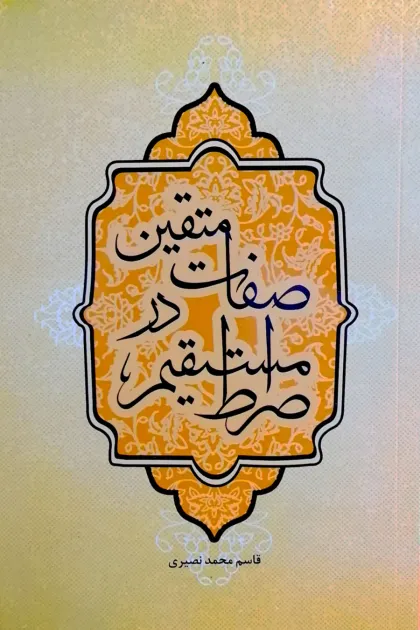 صفات متقین
در
صراط مستقیم
قاسم محمد نصیری